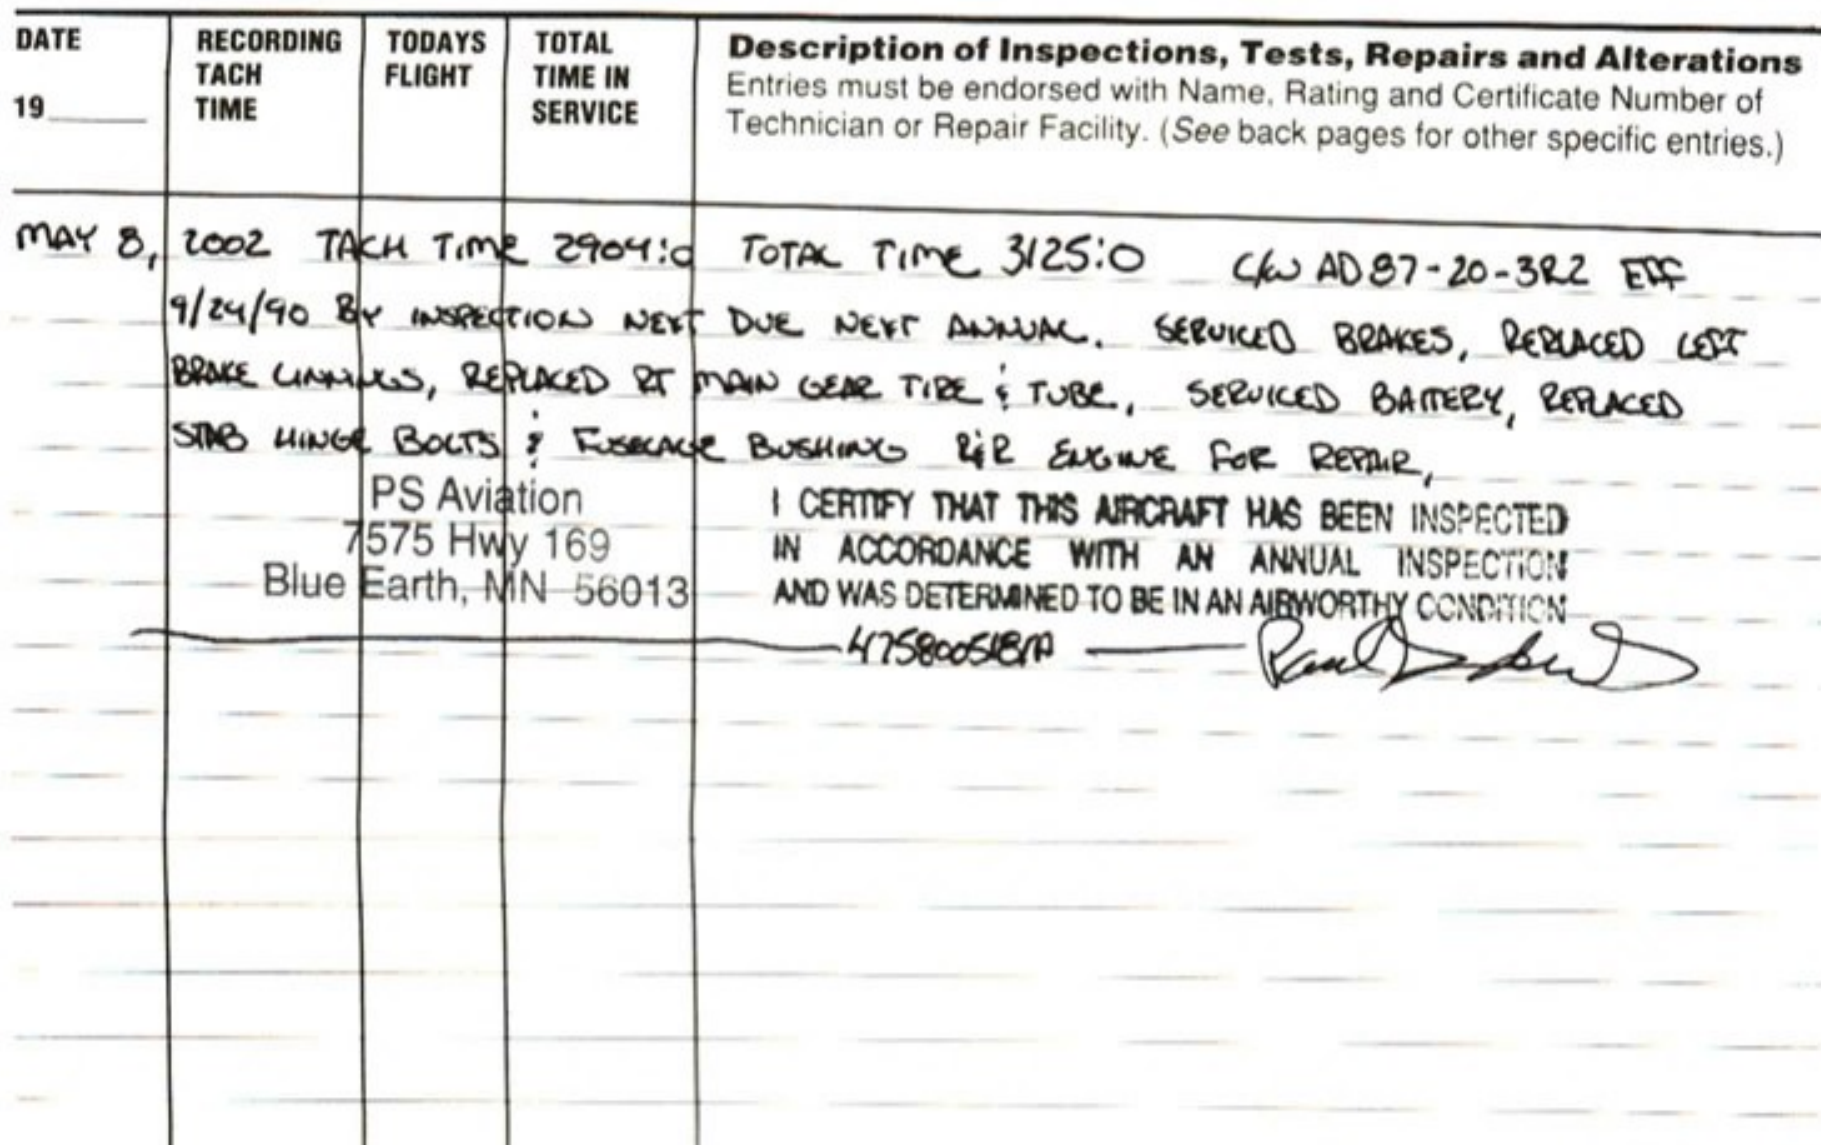 DATE
19____
RECORDING
TACH
TIME
TODAYS
FLIGHT
TOTAL
TIME IN
SERVICE
Description of Inspections, Tests, Repairs and Alterations
Entries must be endorsed with Name, Rating and Certificate Number of
Technician or Repair Facility. (See back pages for other specific entries.)
MAY 8, 2002 TACH TIME 2904:0 TOTAL TIME 3125:0 C/W AD 87-20-3R2 EFF
9/24/90 BY INSPECTION NEXT DUE NEXT ANNUAL. SERVICED BRAKES, REPLACED LEFT
BRAKE LINNINGS, REPLACED RT MAIN GEAR TIRE & TUBE, SERVICED BATTERY, REPLACED
STAB HINGE BOLTS & FUSELAGE BUSHING R&R ENGINE FOR REPAIR,
PS Aviation
7575 Hwy 169
Blue Earth, MN 56013
I CERTIFY THAT THIS AIRCRAFT HAS BEEN INSPECTED
IN ACCORDANCE WITH AN ANNUAL INSPECTION
AND WAS DETERMINED TO BE IN AN AIRWORTHY CONDITION
Paul